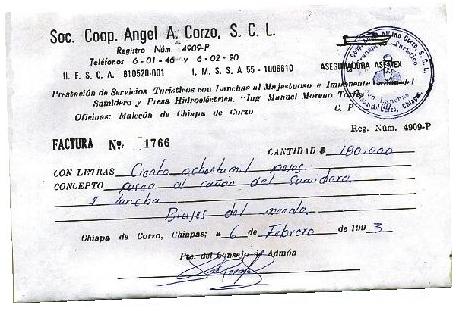 Soc. Coop. Angel A. Corzo, S. C. L.
Registro Núm. 4909-P
Teléfonos 6-01-46 y 6-02-90
R. F. S. C. A. 810520-001 I. M. S. S. A 55-1006610 ASEGURADORA ASEMEX
Prestación de Servicios Turísticos con Lanchas al Majestuoso e Imponente
Sumidero y Presa Hidroeléctrica, "Ing Manuel Moreno Torres
Oficinas: Malecón de Chiapa de Corzo C. P.
Reg. Núm. 4909-P
FACTURA No. 1766 CANTIDAD $ 180.000
CON LETRAS Ciento ochenta mil pesos
CONCEPTO paseo al cañon del Sumidero
1 lancha
Brujos del mundo
Chiapa de Corzo, Chiapas; a 6 de Febrero de 1993
Pte. del Consejo de Admón